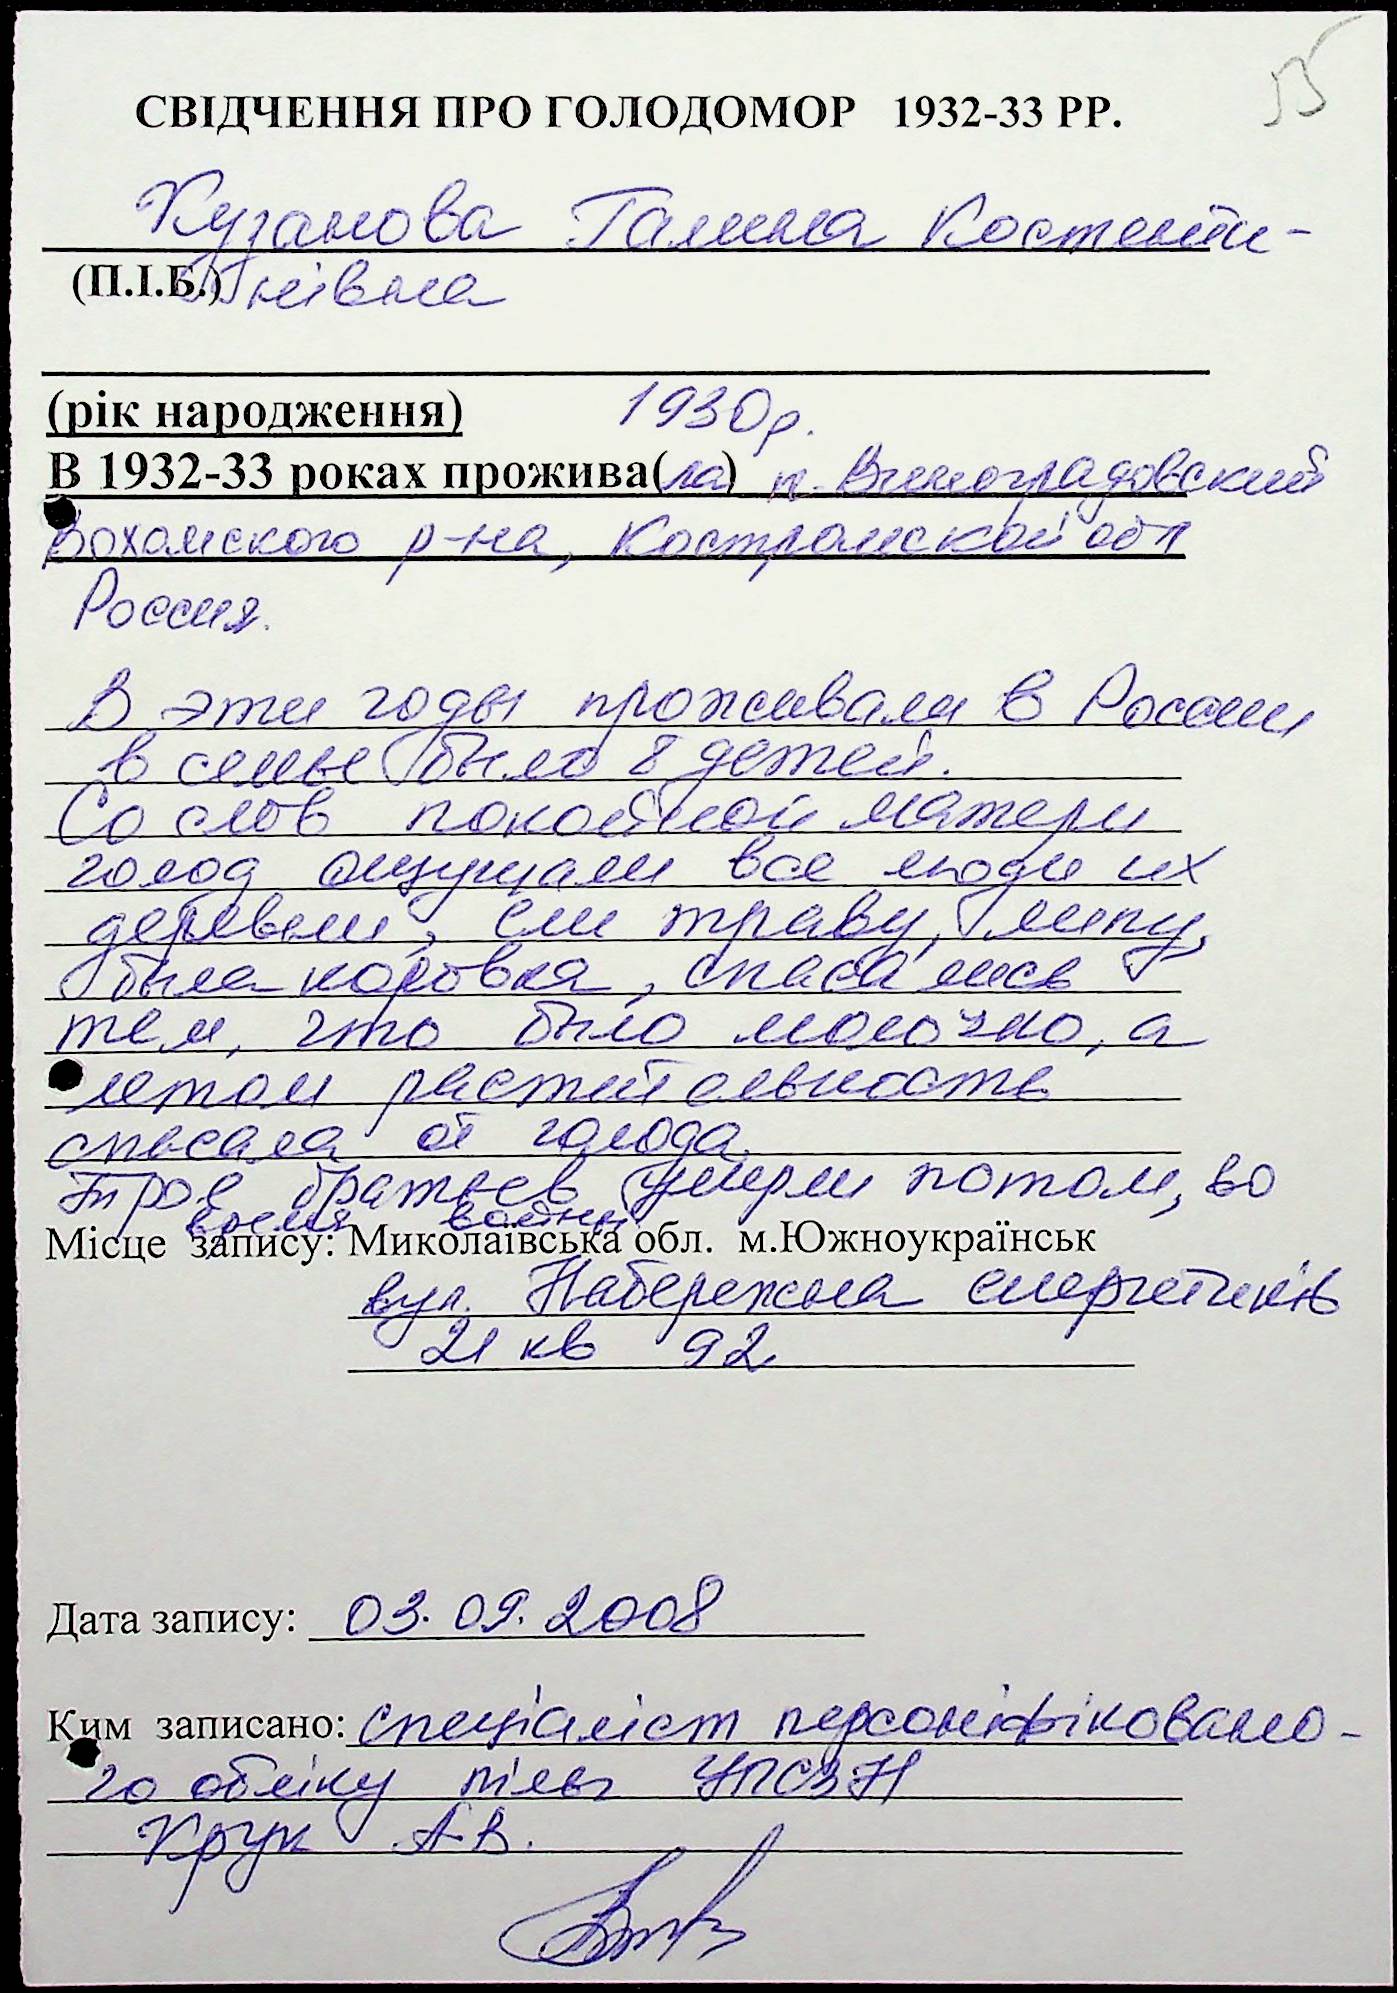 55
СВІДЧЕННЯ ПРО ГОЛОДОМОР 1932-33 РР.
Кузанова Галина Костянти-
(П.І.Б.) нівна
(рік народження) 1930р.
В 1932-33 роках прожива(ла) п. Виноградовский
Вохомского р-на, Костромской обл
Россия.
В эти годы проживали в России
в семье было 8 детей.
Со слов покойной матери
голод ощущали все люди их
деревни, ели траву, липу,
была коровка, спасались
тем, что было молочко, а
летом растительность
спасала от голода.
Трое братьев умерли потом, во
время войны
Місце запису: Миколаївська обл. м.Южноукраїнськ
вул. Набережна енергетиків
21 кв 92
Дата запису: 03.09.2008
Ким записано: спеціаліст персоніфіковано-
го обліку пільг УПСЗН
Крук А.В.